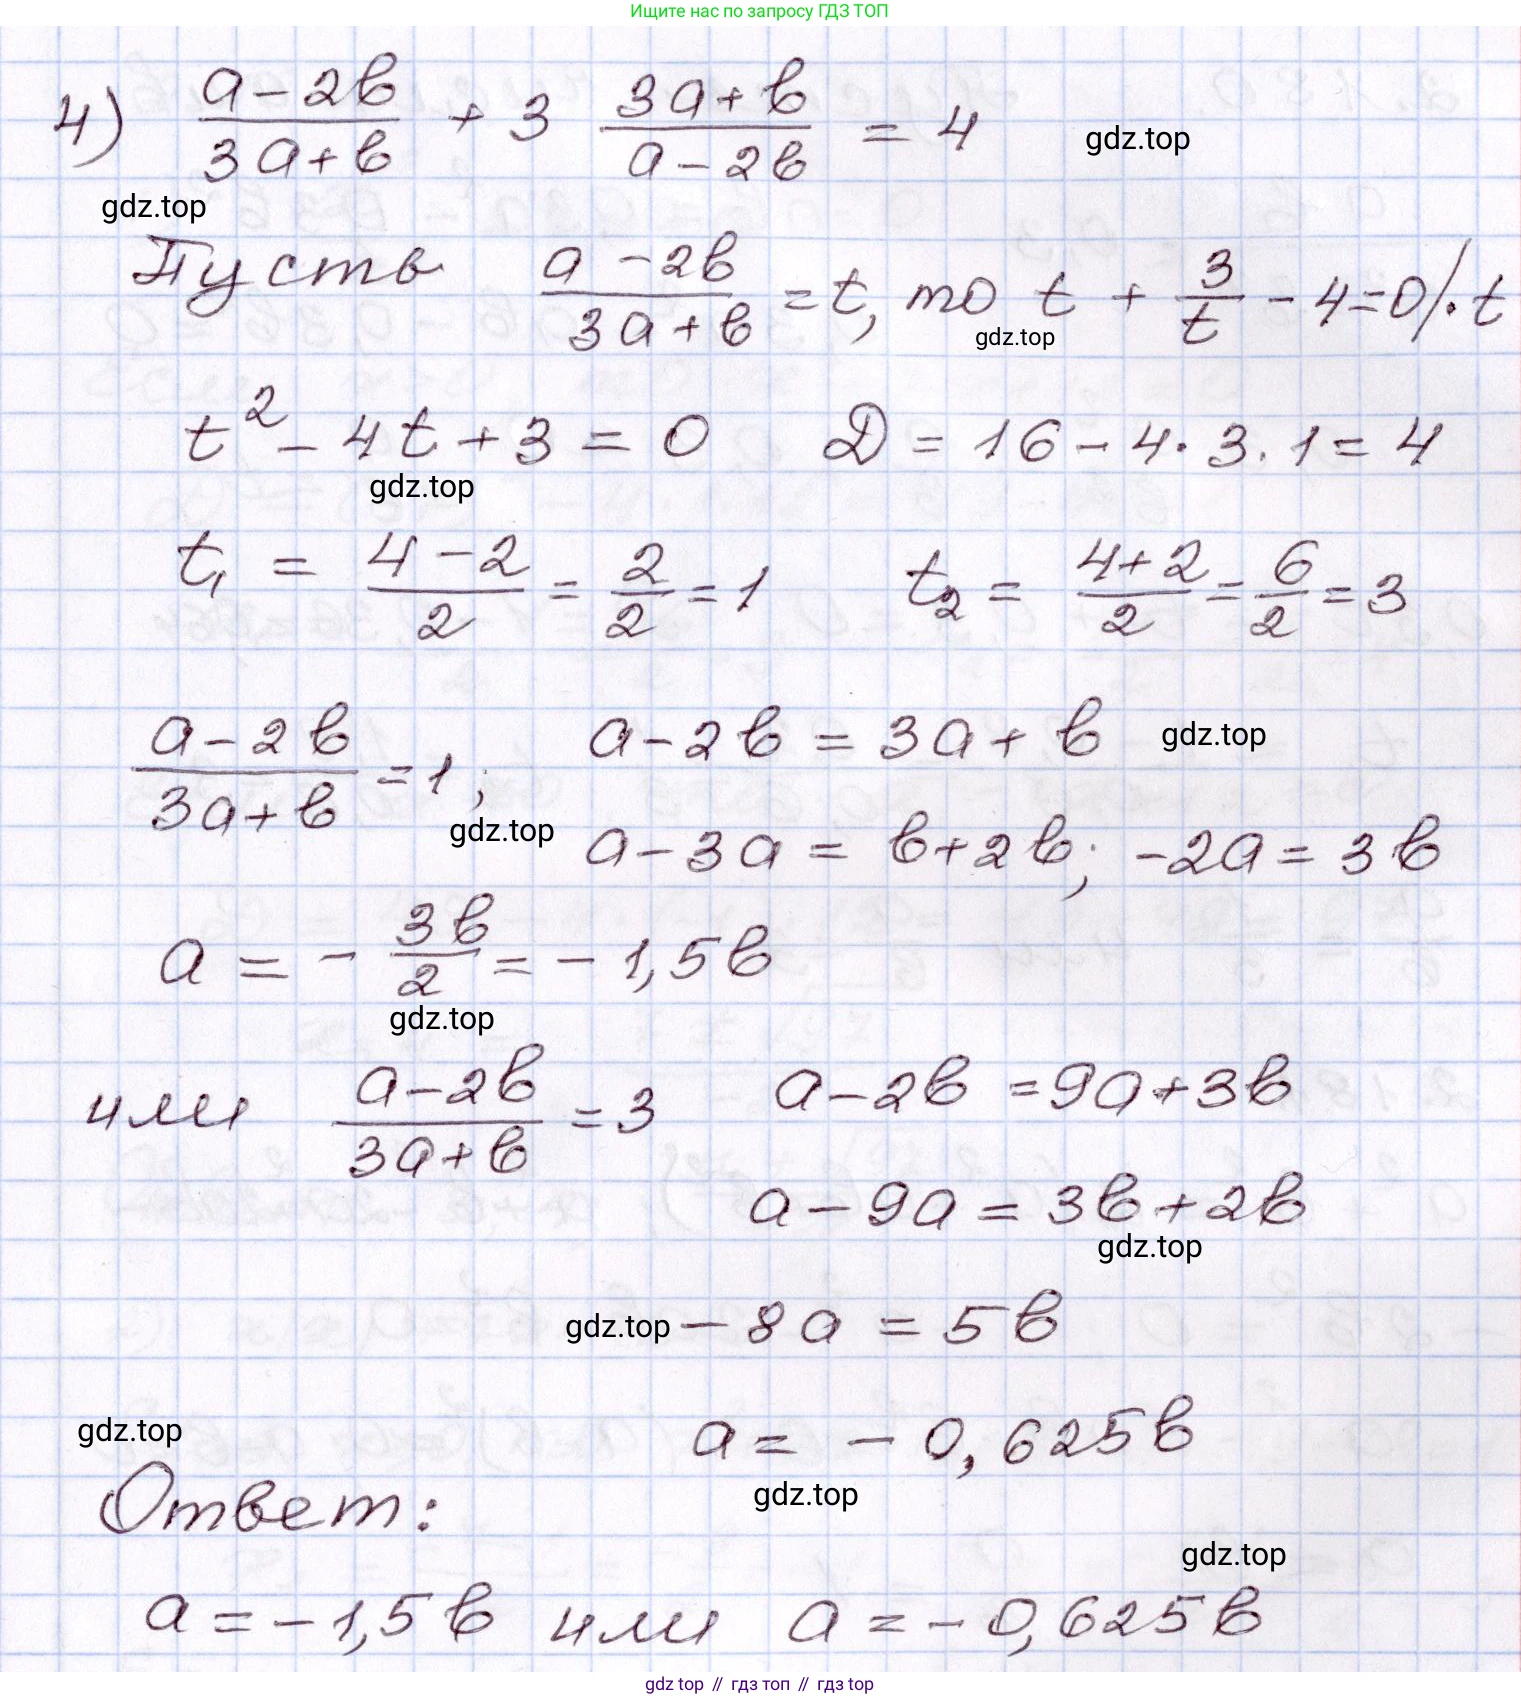 Ищите нас по запросу ГДЗ ТОП
4) (a-2b)/(3a+b) + 3 (3a+b)/(a-2b) = 4
gdz.top
gdz.top
Пусть (a-2b)/(3a+b) = t, то t + 3/t - 4=0/·t
gdz.top
t² - 4t + 3 = 0 D = 16 - 4·3·1 = 4
gdz.top
t₁ = (4-2)/2 = 2/2 = 1 t₂ = (4+2)/2 = 6/2 = 3
(a-2b)/(3a+b) = 1; a-2b = 3a+b
gdz.top
gdz.top
a-3a = b+2b; -2a = 3b
a = - 3b/2 = -1,5b
gdz.top
или (a-2b)/(3a+b) = 3 a-2b = 9a+3b
a-9a = 3b+2b
gdz.top
gdz.top
-8a = 5b
gdz.top
a = -0,625b
gdz.top
Ответ:
gdz.top
a = -1,5b или a = -0,625b
gdz top // гдз топ // gdz top